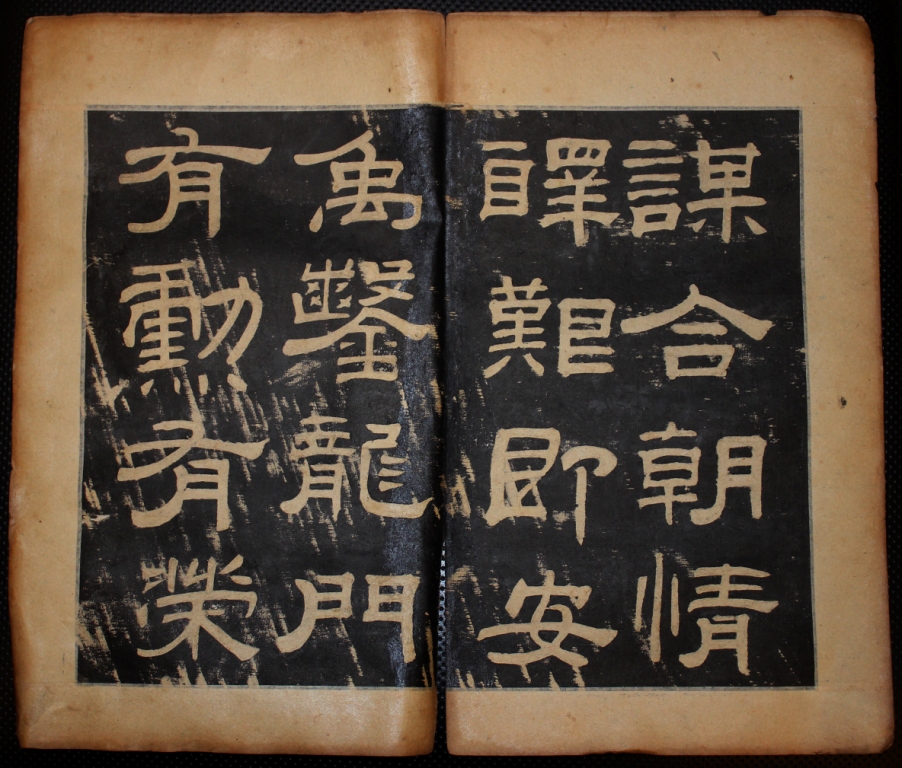 謀合朝情
醳艱即安
禹鑿龍門
有勳有榮